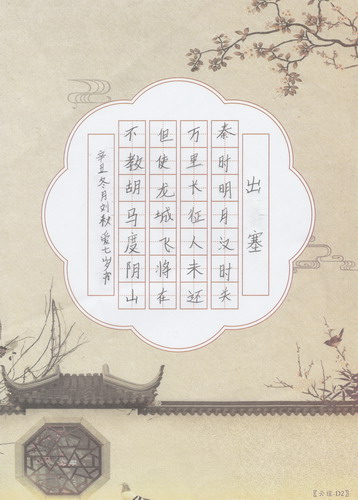 出塞
秦时明月汉时关
万里长征人未还
但使龙城飞将在
不教胡马度阴山
辛丑冬月刘秋七岁书